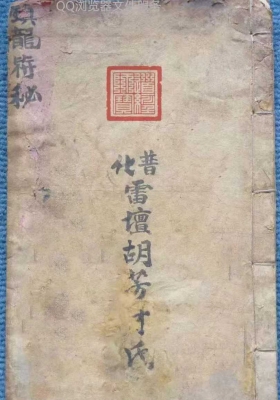 QQ浏览器文件服务
鎮龍符秘
普化
雷壇胡芳才氏